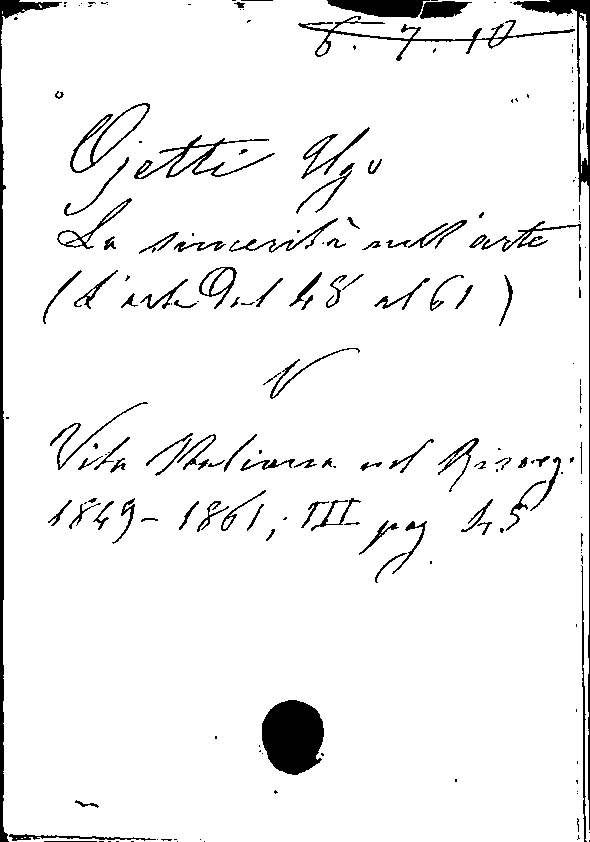 6. 7. 10
Ojetti Ugo
La sincerità nell'arte
(L'arte dal 48 al 61)
V
Vita Italiana nel Risorg.
1849-1861, III pag 45